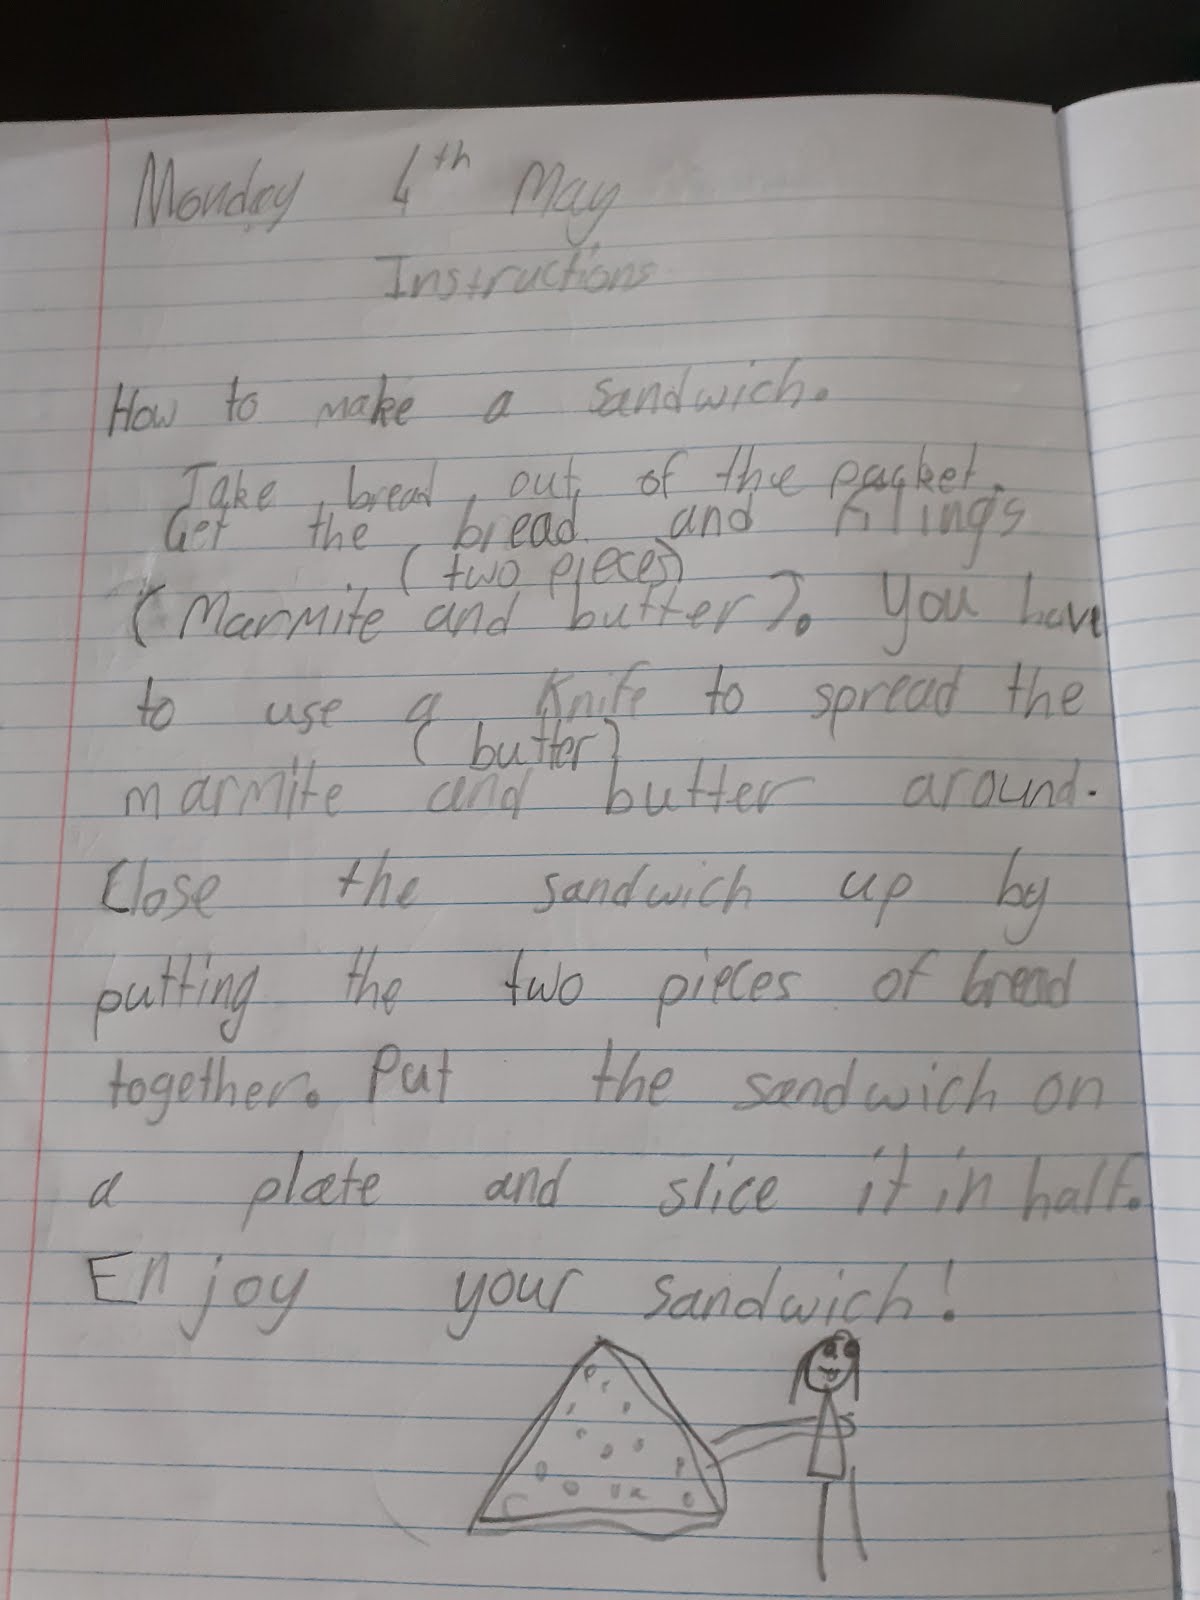 Monday 4th May
Instructions
How to make a sandwich.
Take bread out of the packet.
Get the bread and fillings
(two pieces)
(Marmite and butter). You have
to use a knife to spread the
(butter)
marmite and butter around.
Close the sandwich up by
putting the two pieces of bread
together. Put the sandwich on
a plate and slice it in half.
Enjoy your sandwich!